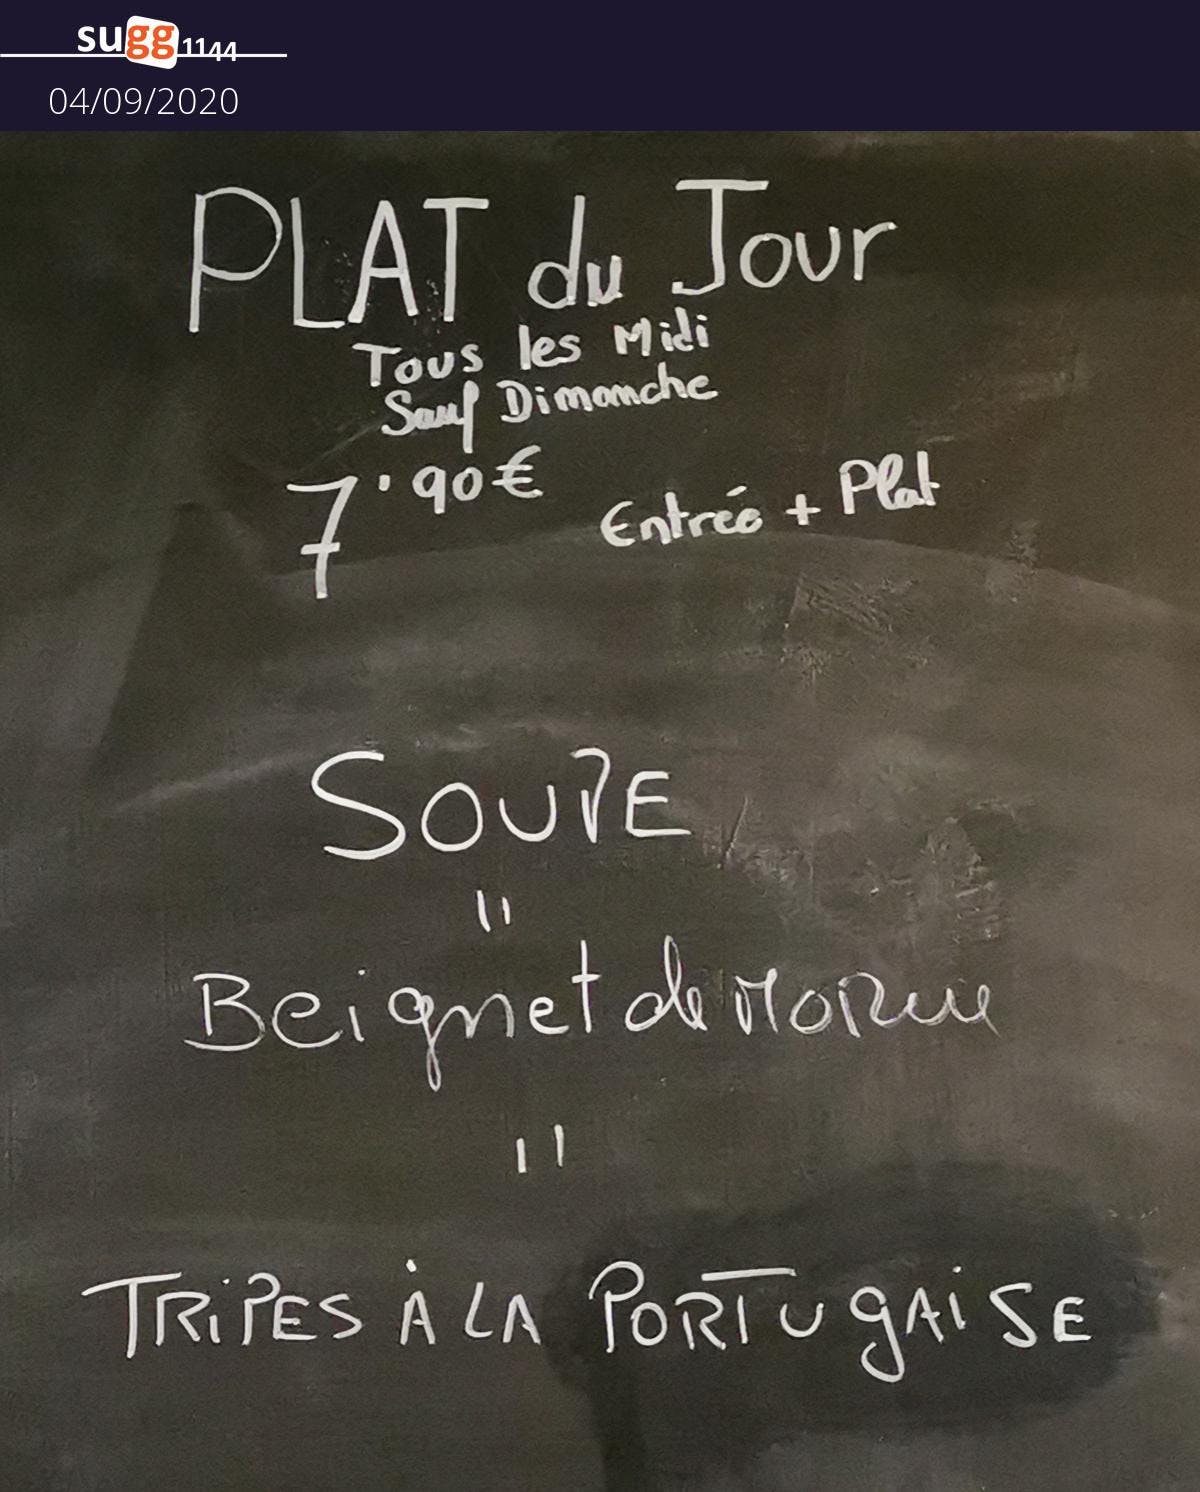 sugg1144
04/09/2020
PLAT du Jour
Tous les Midi
Sauf Dimanche
7'90€ Entrée + Plat
SOUPE
"
Beignet de MORue
"
TRiPES À LA PORTUgAiSE